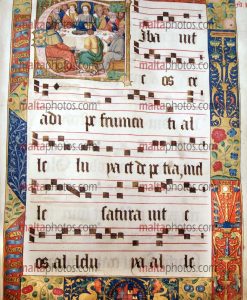 iba uit
maltaphotos.com
e os ex
maltaphotos.com
adi pe frumen ti al
maltaphotos.com
le lu ya et de pe tra, mel
maltaphotos.com
le satura uit e
maltaphotos.com
os al lelu ya al le
maltaphotos.com